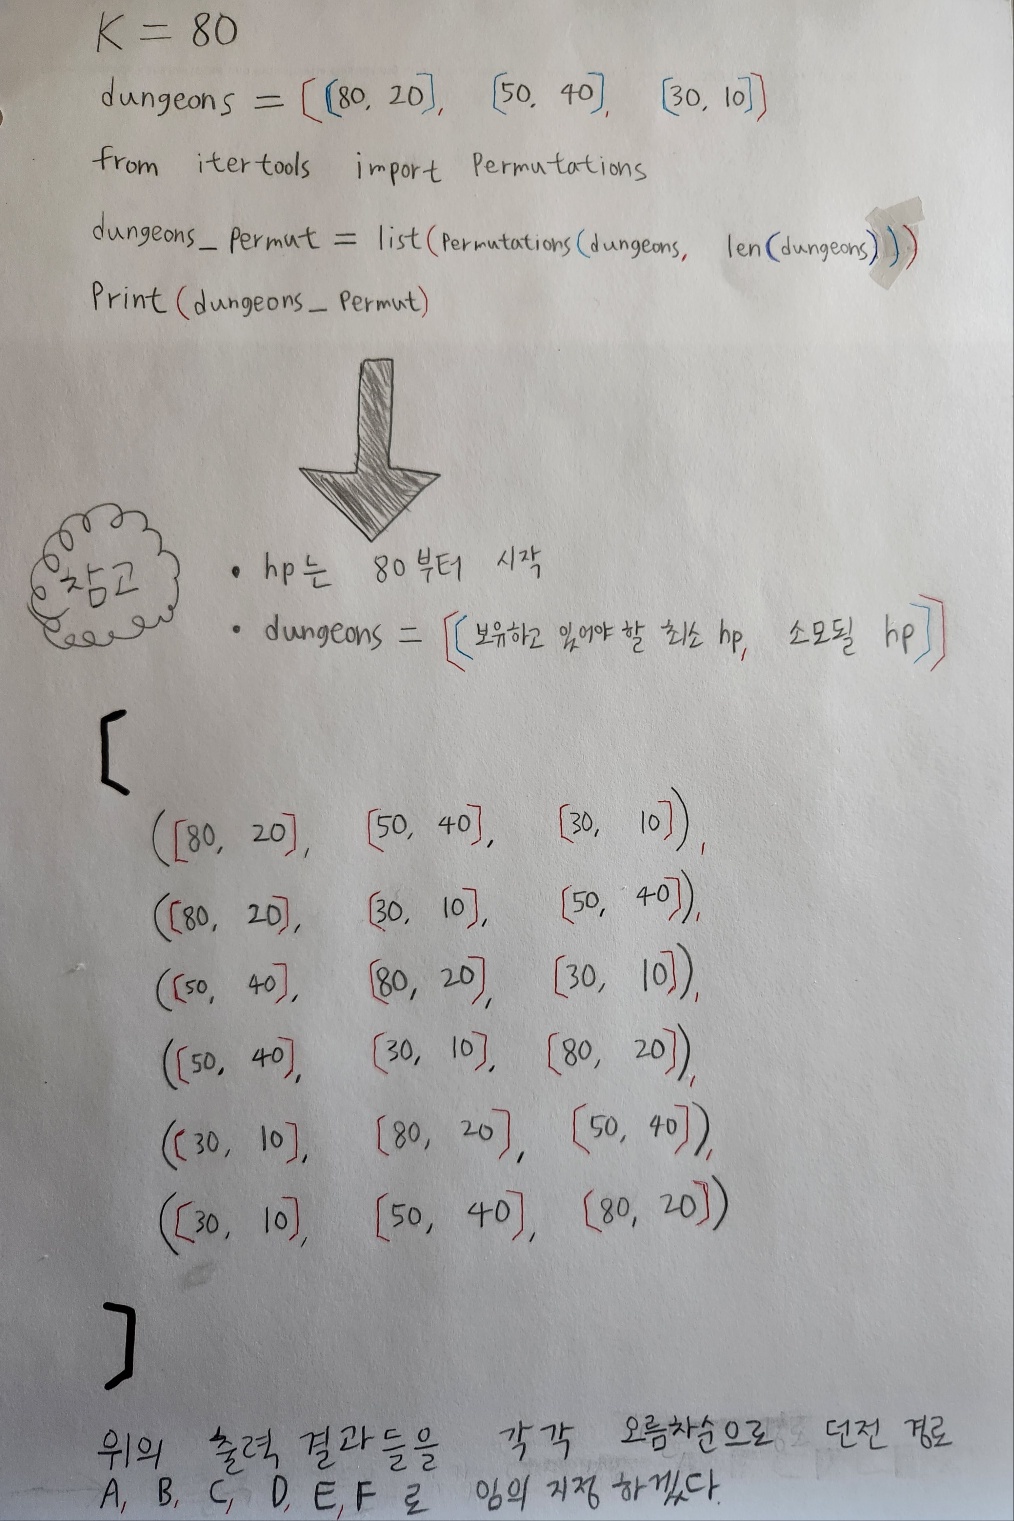 K = 80
dungeons = [[80, 20], [50, 40], [30, 10]]
from itertools import Permutations
dungeons_Permut = list(Permutations(dungeons, len(dungeons)))
Print(dungeons_Permut)
참고
• hp는 80부터 시작
• dungeons = [[보유하고 있어야 할 최소 hp, 소모될 hp]]
[
([80, 20], [50, 40], [30, 10]),
([80, 20], [30, 10], [50, 40]),
([50, 40], [80, 20], [30, 10]),
([50, 40], [30, 10], [80, 20]),
([30, 10], [80, 20], [50, 40]),
([30, 10], [50, 40], [80, 20])
]
위의 출력 결과들을 각각 오름차순으로 던전 경로
A, B, C, D, E, F 로 임의 지정 하겠다.